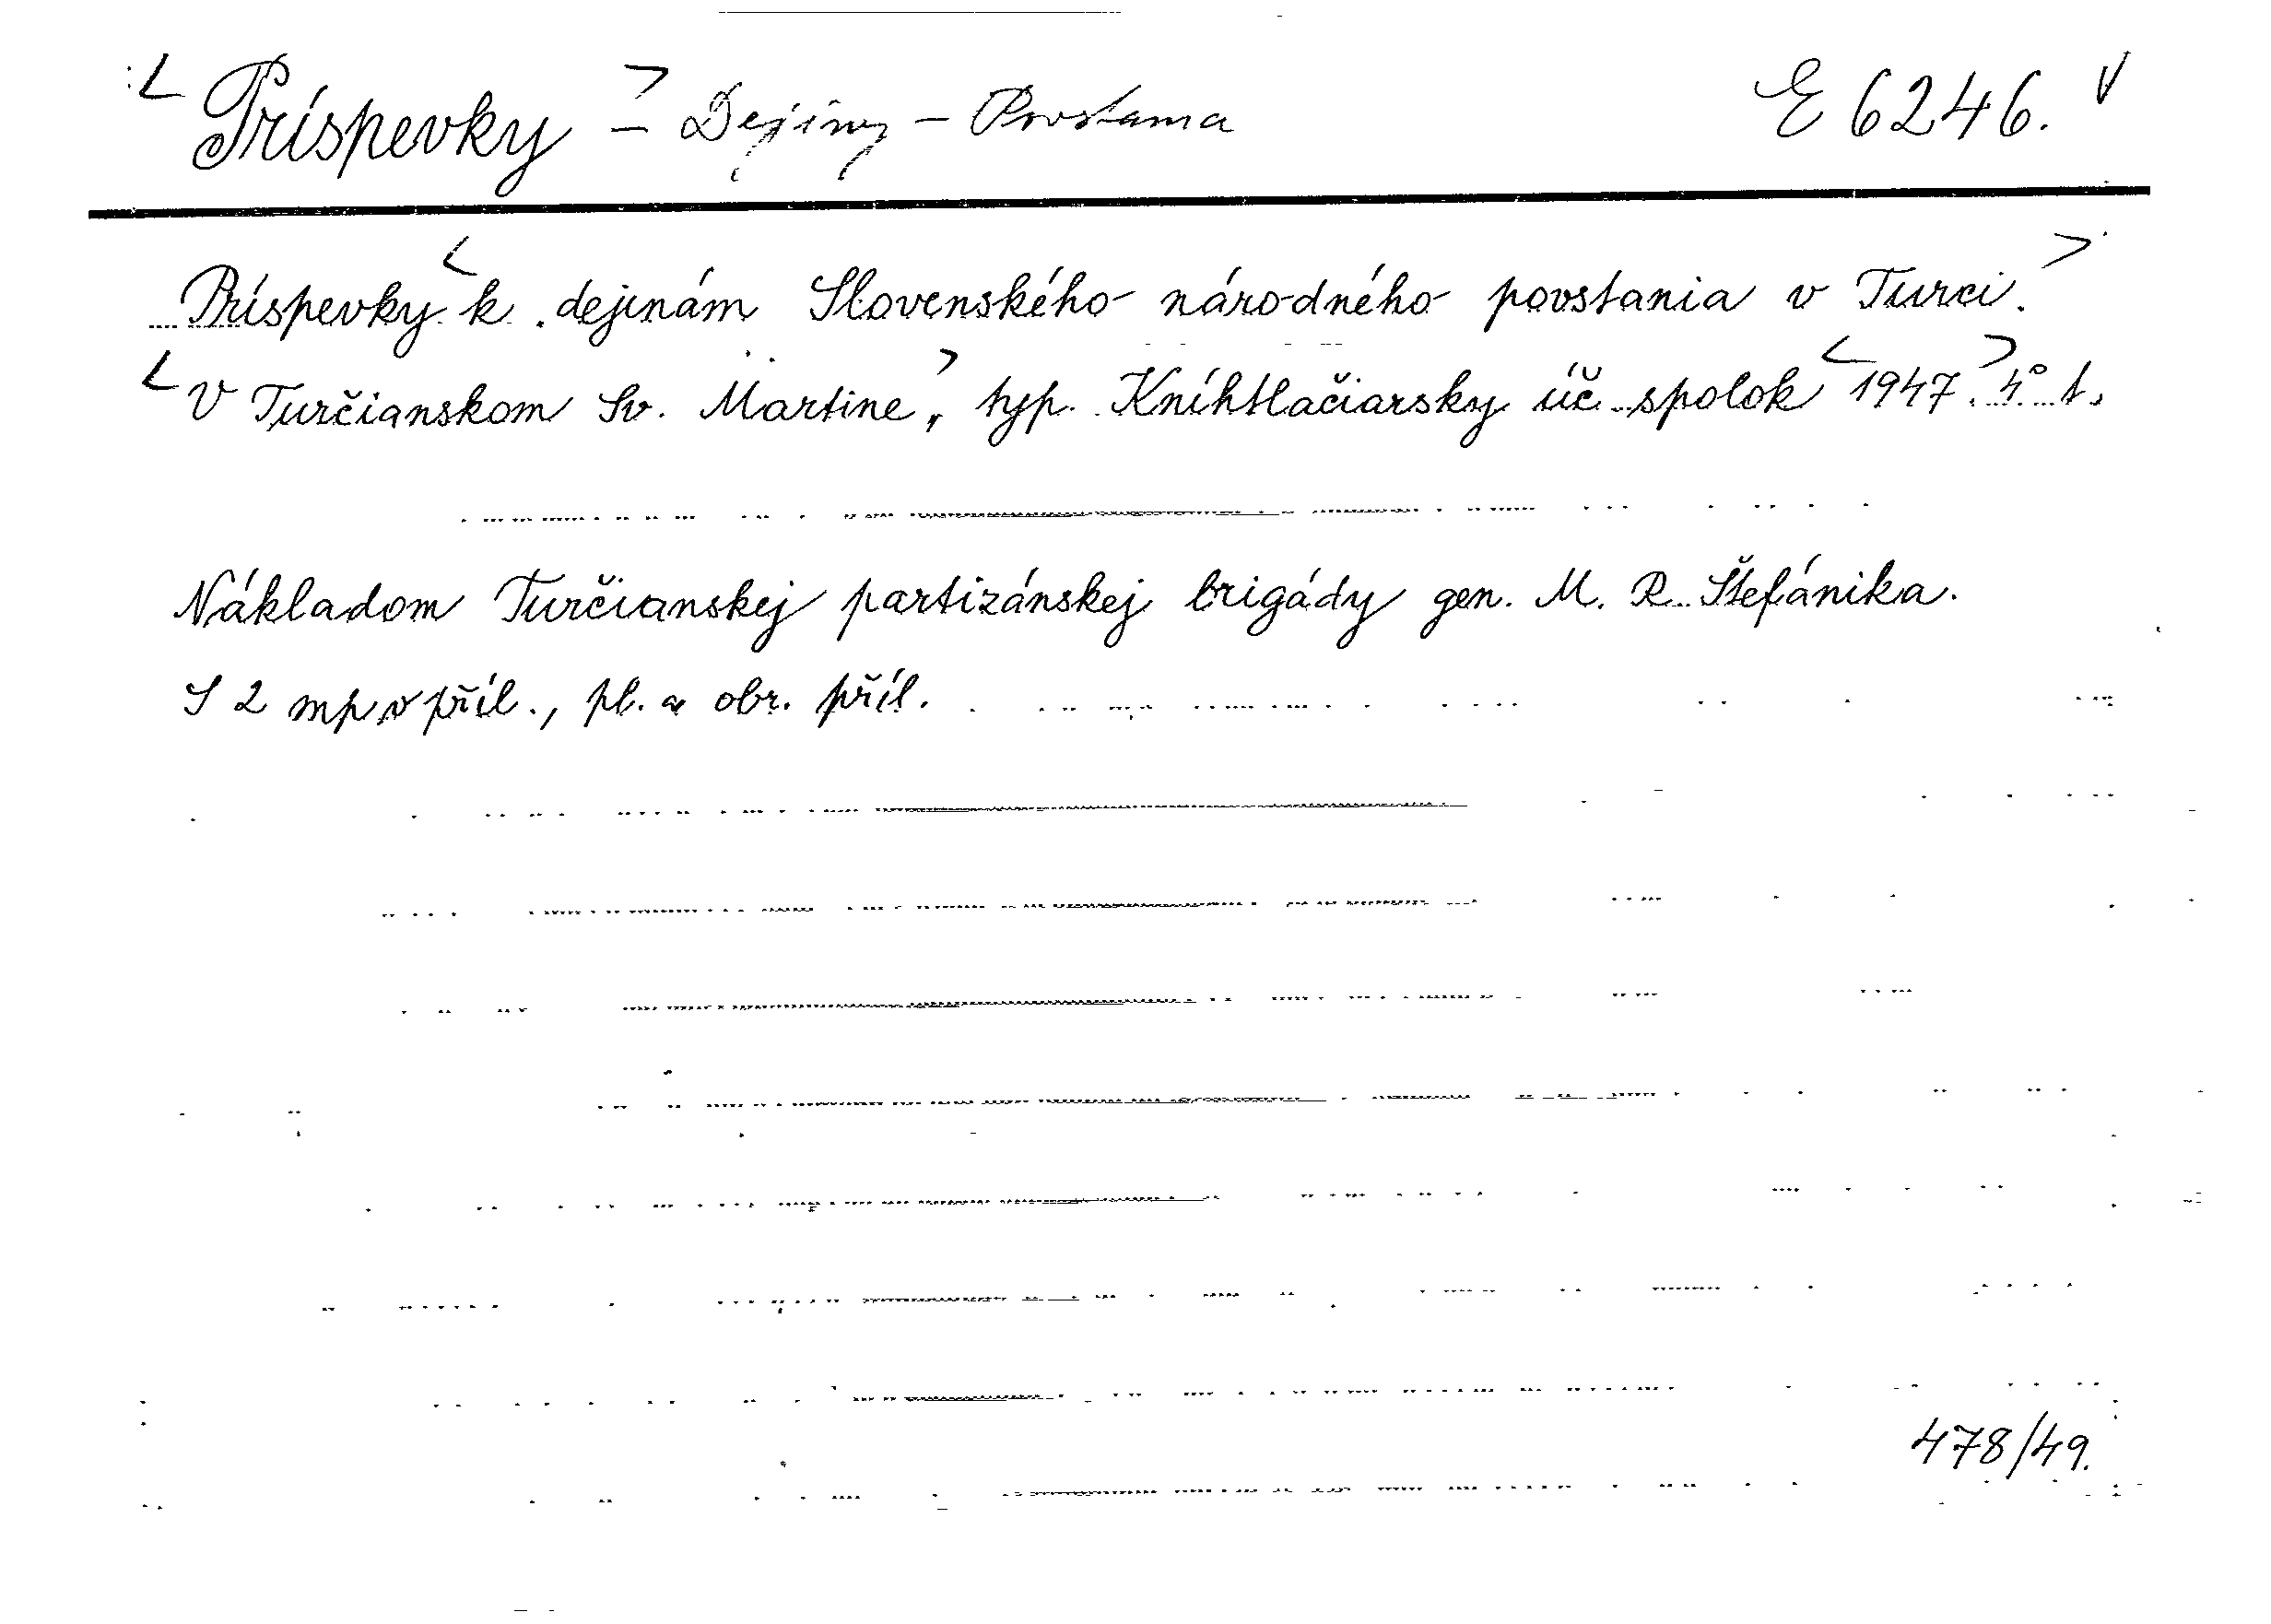 < Príspevky > – Dejiny – Povstania E 6246. V
Príspevky < k dejinám Slovenského národného povstania v Turci. >
< V Turčianskom Sv. Martine, > typ. Kníhtlačiarsky úč. spolok < 1947. > 4° t.
Nákladom Turčianskej partizánskej brigády gen. M. R. Štefánika.
S 2 mp v příl., pl. a obr. příl.
478/49.